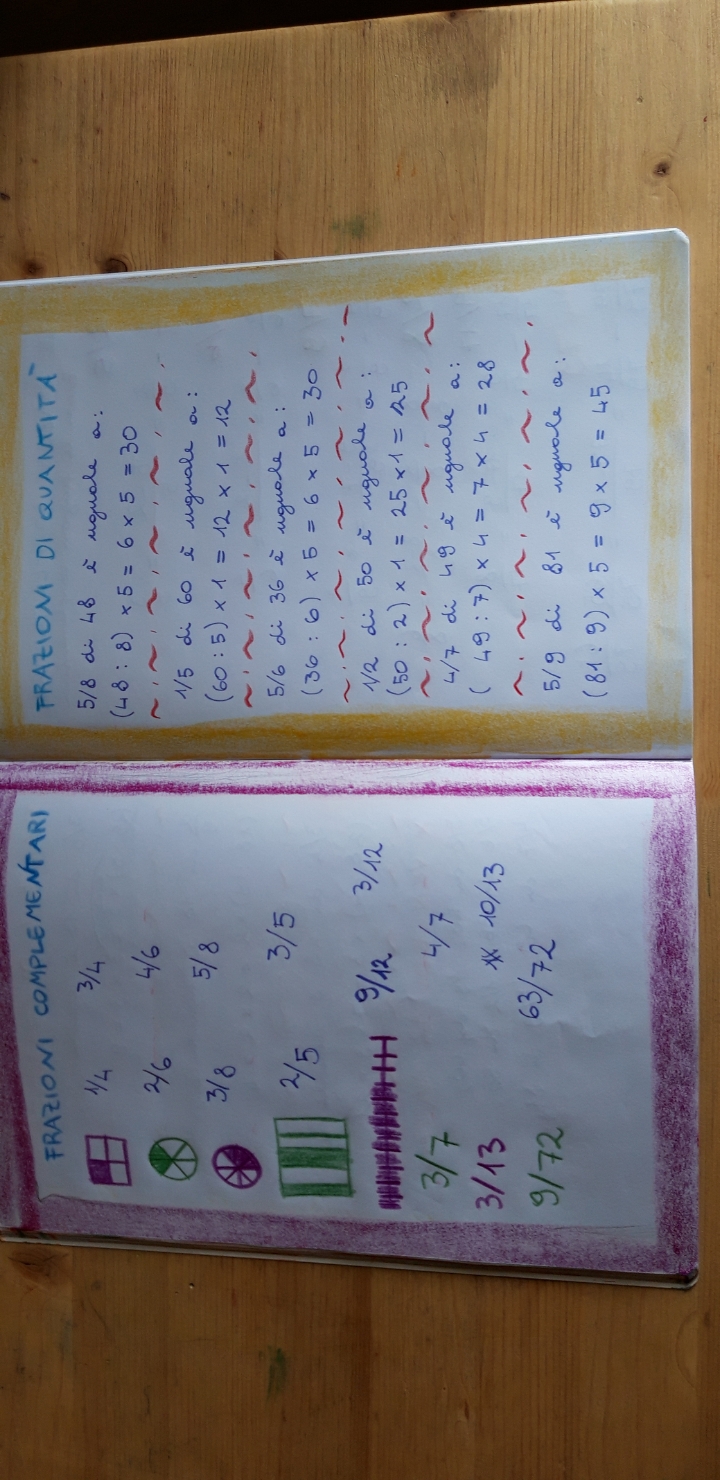 FRAZIONI COMPLEMENTARI
1/4 3/4
2/6 4/6
3/8 5/8
2/5 3/5
9/12 3/12
3/7 4/7
3/13 10/13
9/72 63/72
FRAZIONI DI QUANTITÀ
5/8 di 48 è uguale a:
(48 : 8) x 5 = 6 x 5 = 30
1/5 di 60 è uguale a:
(60 : 5) x 1 = 12 x 1 = 12
5/6 di 36 è uguale a:
(36 : 6) x 5 = 6 x 5 = 30
1/2 di 50 è uguale a:
(50 : 2) x 1 = 25 x 1 = 25
4/7 di 49 è uguale a:
(49 : 7) x 4 = 7 x 4 = 28
5/9 di 81 è uguale a:
(81 : 9) x 5 = 9 x 5 = 45